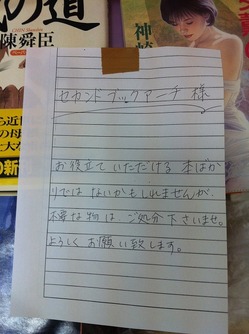 の道
陳舜臣
神崎
ら近
の母
士大な
の新
セカンドブックアーチ 様
お役立ていただける 本ばか
りでは ないかもしれませんが、
不要な物は ご処分下さいませ。
よろしく お願い致します。